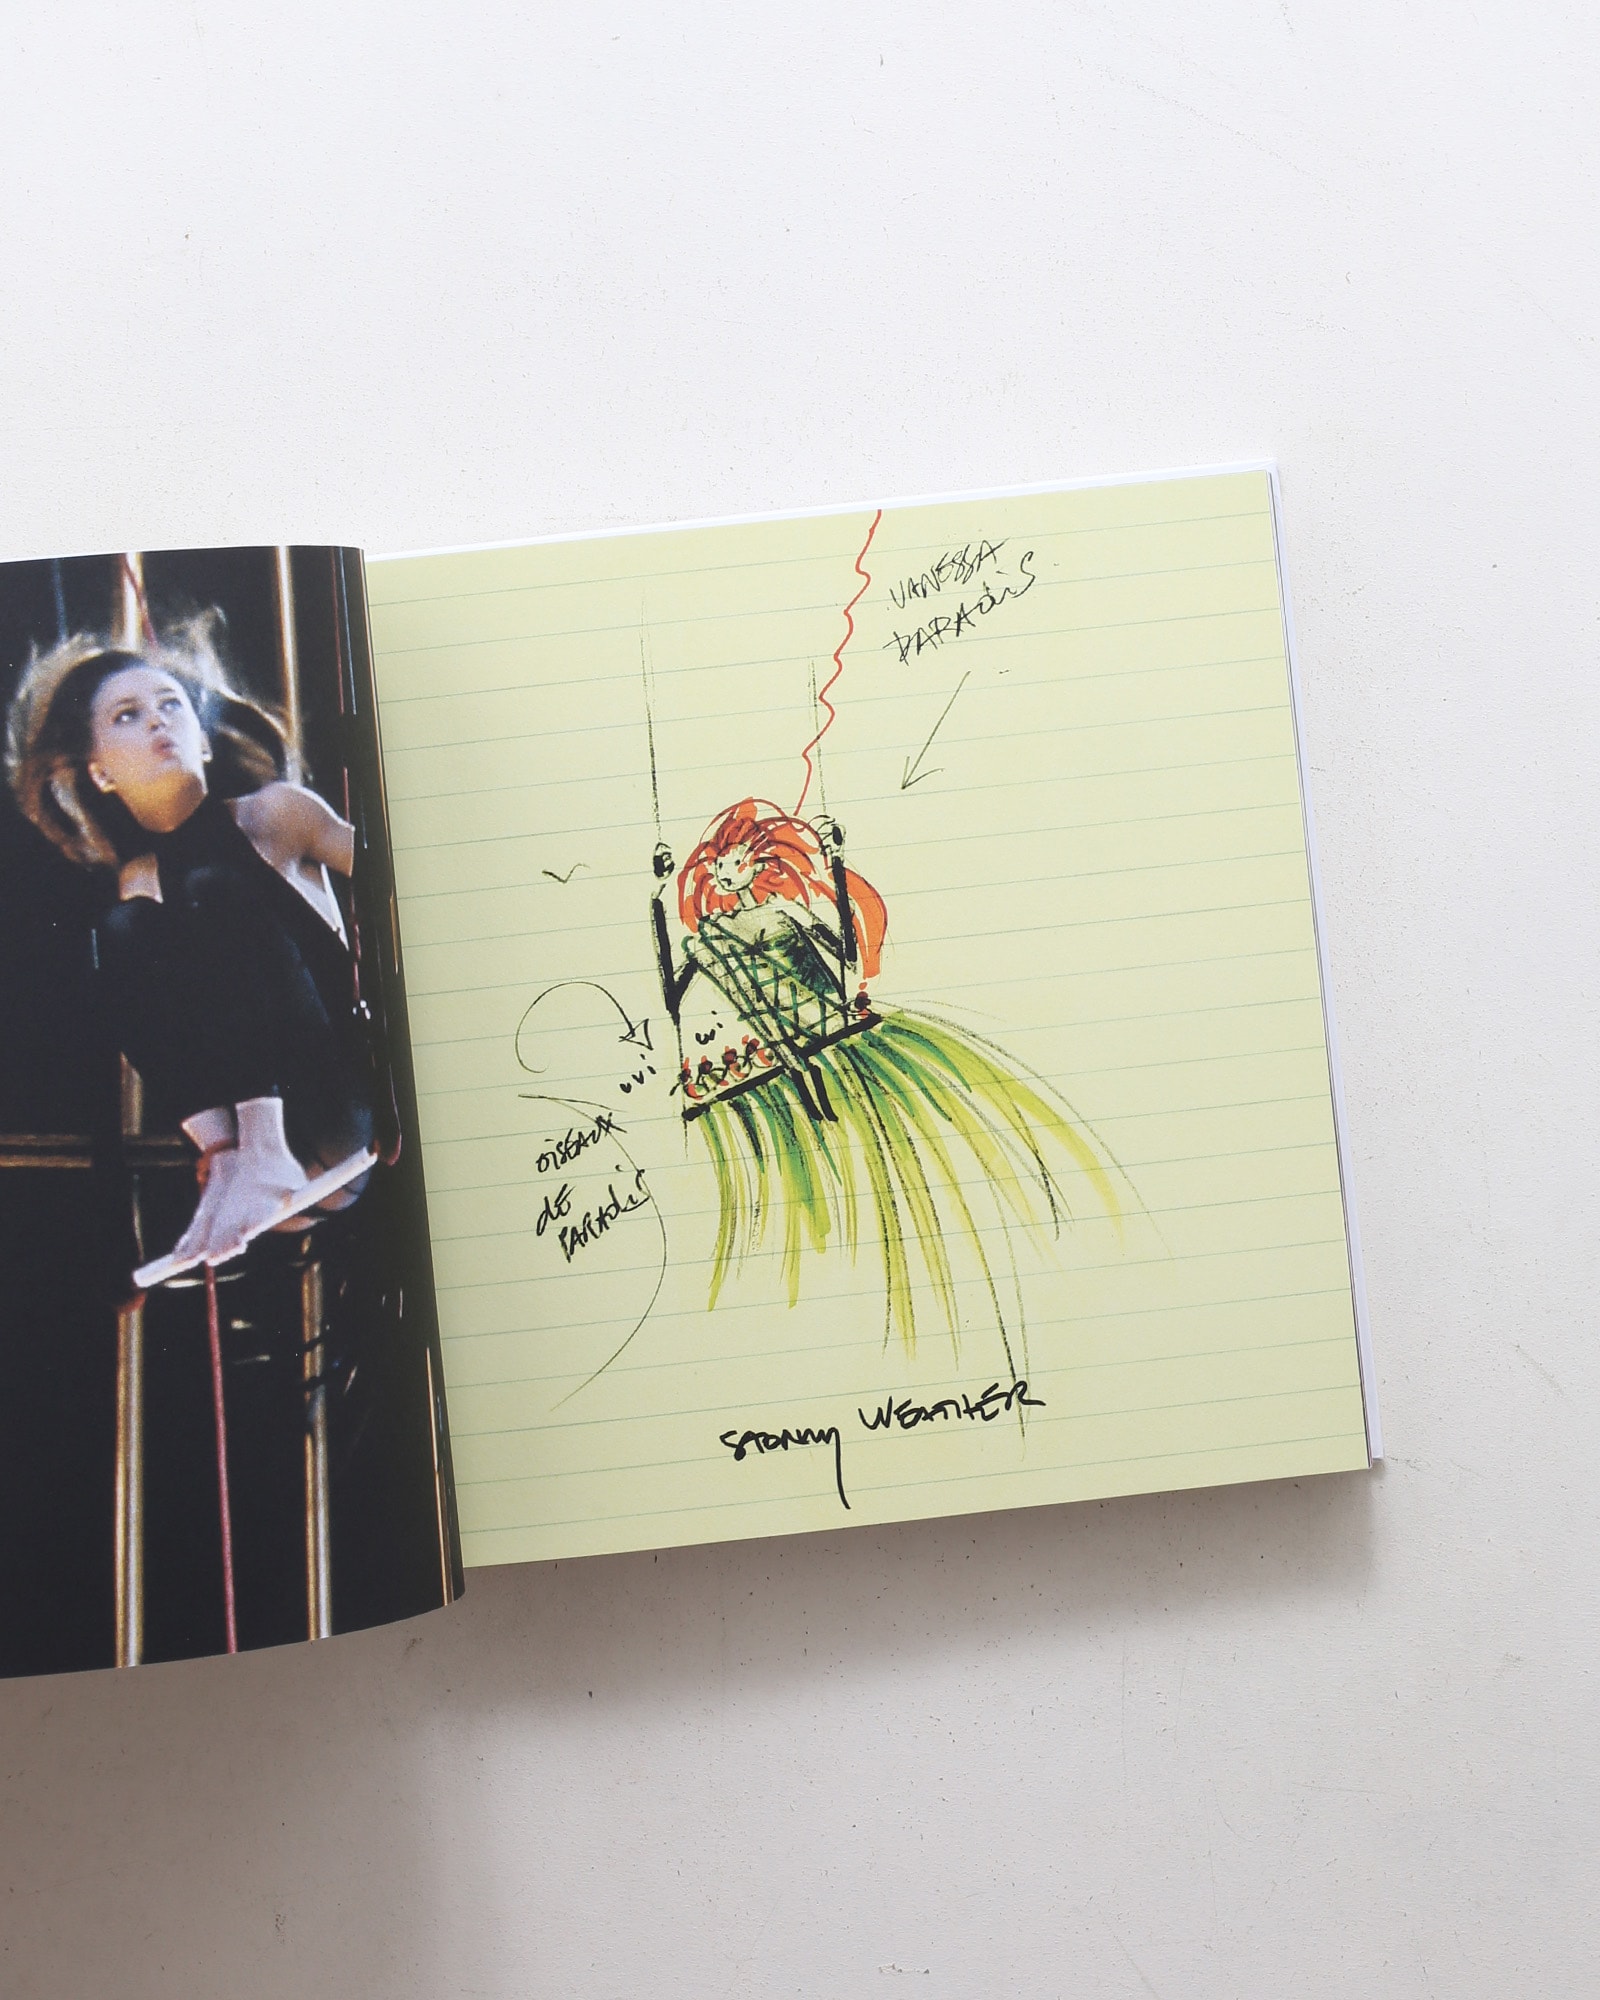 VANESSA
PARADiS
cui
cui
OiSEAUX
dE
PARADiS
STORMY WEATHER